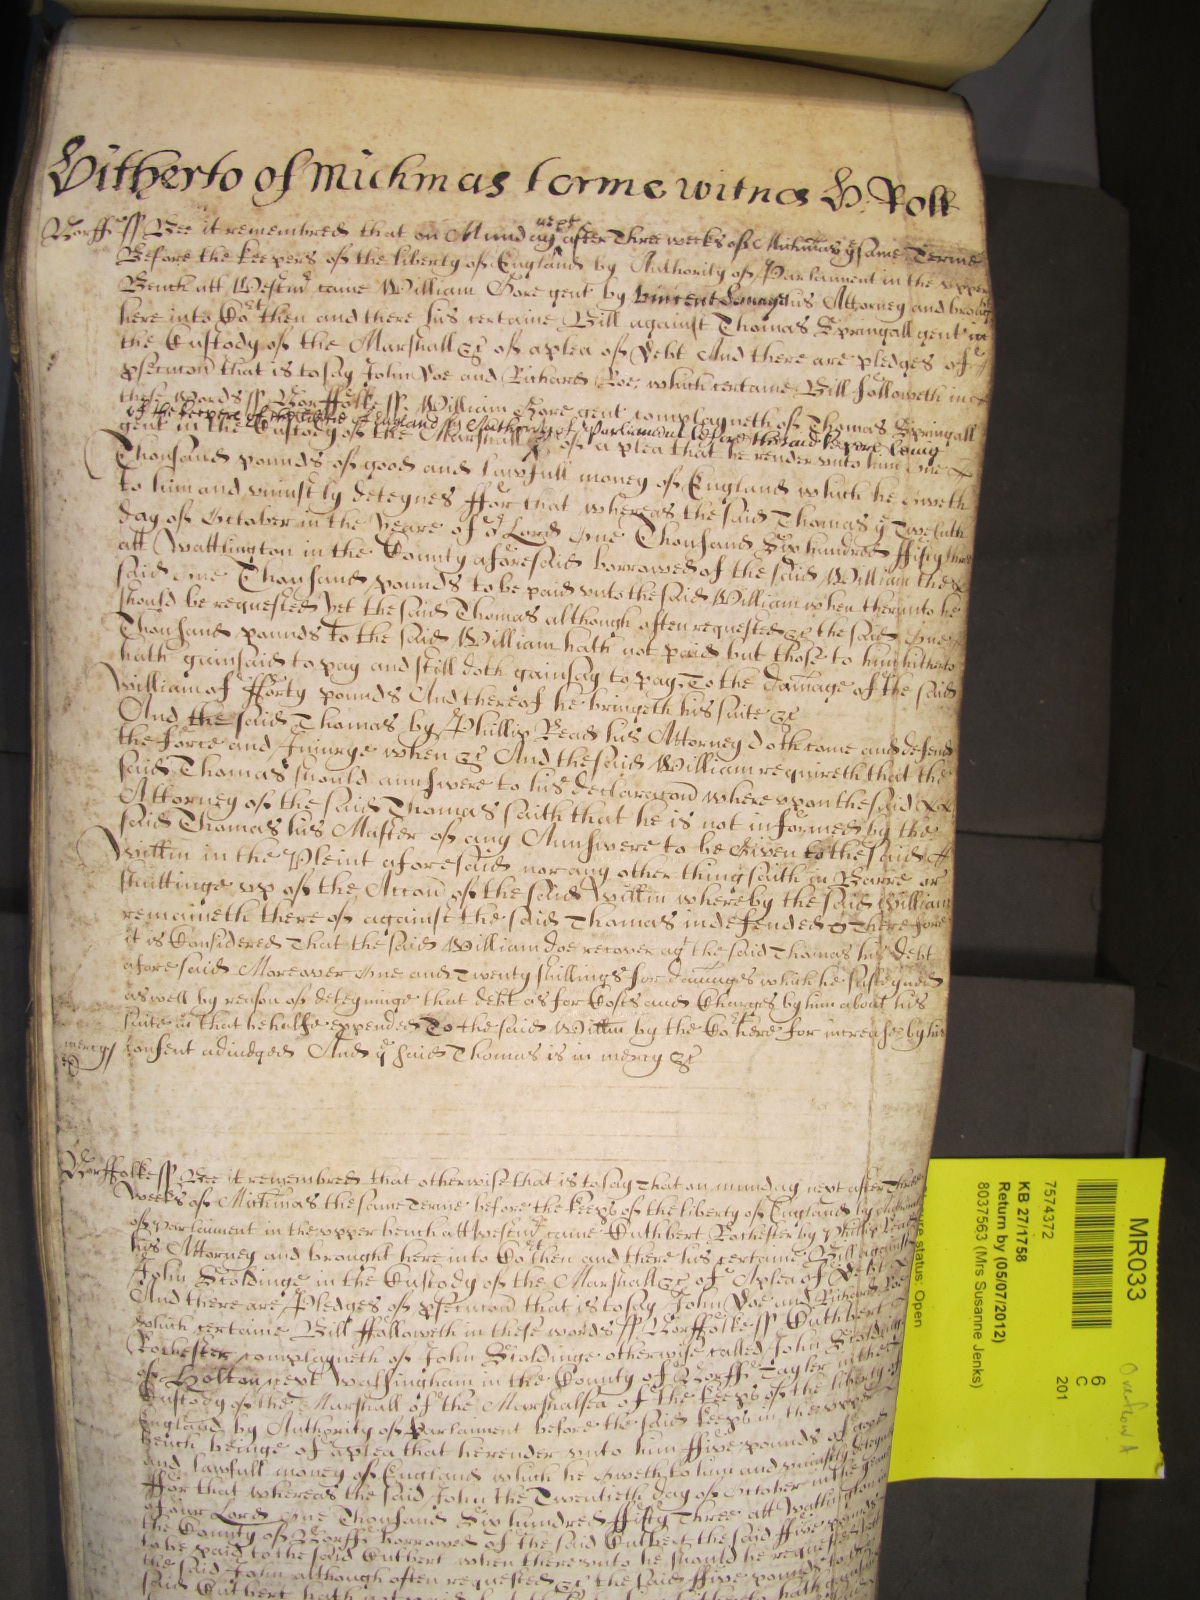 Hitherto of Michmas Terme witnes H: Roll
Norff ss Bee it remembred that on Munday next after Three weekes of Michmas ye same Terme
Before the keepers of the liberty of England by Authority of Parliament in the upper
Bench att Westmr came William Gore gent by Vincent his Attorney and brought
here into Cort then and there his certaine Bill against Thomas Springall gent in
the Custody of the Marshall &c of a plea of Debt And there are pledges of
psecucon that is to say John Doe and Richard Roe, which certaine Bill followeth in
these words ss Norffolke ss William Gore gent complayneth of Thomas Springall
of the keepers of the libertie of England by Authority of Parliament before the said keepers being
gent in the Custody of the Marshall of a plea that he render unto him One
Thousand pounds of good and lawfull money of England which he oweth
to him and uniustly deteynes ffor that whereas the said Thomas ye Twelueth
day of October in the yeare of or Lord One Thousand Six hundred ffifty three
att Wattlington in the County aforesaid borrowed of the said William the
said One Thousand pounds to be paid unto the said William when thereunto he
should be requested Yet the said Thomas although often requested &c the said One
Thousand pounds to the said William hath not paid but those to him hitherto
hath gainsaid to pay and still doth gainsay to pay, To the damage of the said
William of fforty pounds And thereof he bringeth his suite &c
And the said Thomas by Phillip Read his Attorney doth come and defend
the force and Iniurye when &c And the said William requireth that the
said Thomas should aunswere to his declaracon where upon the said
Attorney of the said Thomas saith that he is not informed by the
said Thomas his Master of any Aunswere to be Given to the said
Willm in the Pleint aforesaid nor any other thing saith in Barre or
shuttinge up of the Accon of the said Willm whereby the said William
remaineth there of against the said Thomas indefended Therefore
it is Considered That the said William doe recover agt the said Thomas his debt
aforesaid Moreover One and Twenty shillings for damages which he susteyned
as well by reason of deteyninge that debt as for Costs and Charges by him about his
suite in that behalfe expended To the said Willm by the Cort here for increase by his
mercy
consent adiudged And ye said Thomas is in mercy &c
Norffolke ss Bee it remembred that otherwise that is to say That on munday next after Three
weeks of Michmas the same Terme before the keeps of the liberty of England by Authority
of Parliament in the upper bench att westmr came Cuthbert Rochester by Phillip Read
his Attorney and brought here into Cort then and there his certaine Bill against
John Stoldinge in the Custody of the Marshall &c of A plea of Debt
And there are Pledges of psecucon that is to say John Doe and Richard Roe
which certaine Bill ffolloweth in these words ss Norffolke ss Cuthbert
Rochester complayneth of John Stoldinge otherwise called John Stoldinge
of Holton next Walsingham in the County of Norff Tayler in the
Custody of the Marshall of the Marshalsea of the keeps of the liberty of
England by Authority of Parliament before the said keeps in the upper
bench beinge of a plea that he render unto him ffive pounds of good
and lawfull money of England which he oweth to him and uniustly deteyneth
ffor that whereas the said John the Twentieth day of October in the yeare
of our Lord One Thousand Six hundred ffifty Three att Watlington in
the County of Norff borrowed of the said Cutbert the said ffive pounds
to be paid to the said Cutbert when thereunto he should be requested Yet
the said John although often requested &c the said ffive pounds to the
said Cutbert hath not paid
MR033
6
C
201
7574372
KB 27/1758
Return by (05/07/2012)
8037563 (Mrs Susanne Jenks)
status: Open
Overflow A